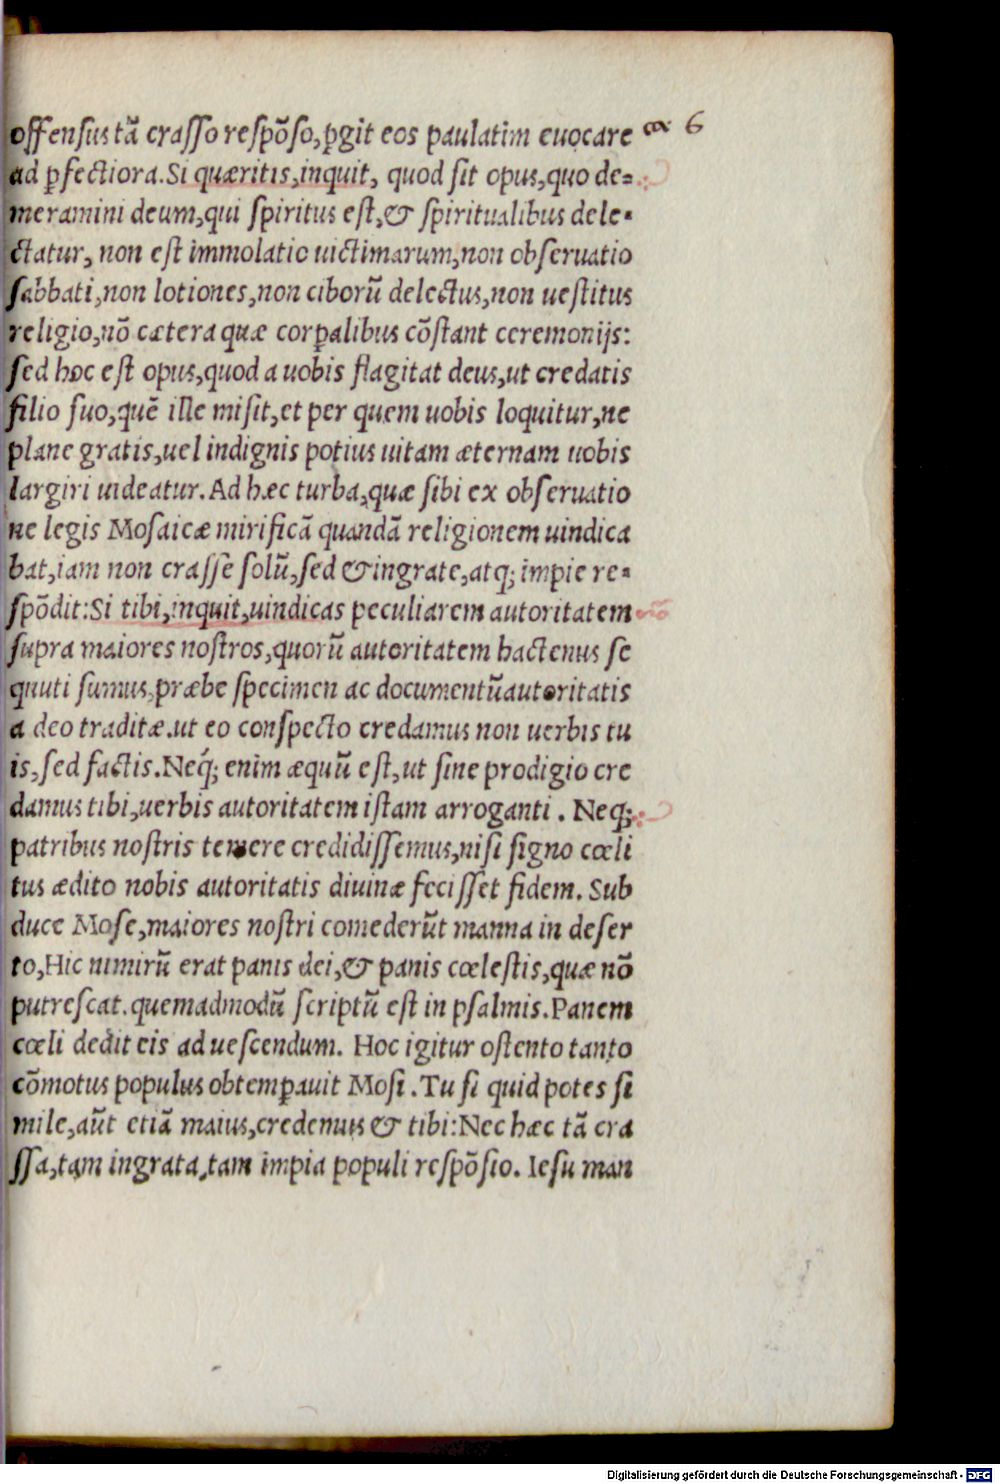 offensus tã crasso respõso, ꝑgit eos paulatim euocare
ca 6
ad ꝑfectiora. Si quæritis, inquit, quod sit opus, quo de=
meramini deum, qui spiritus est, & spiritualibus dele-
ctatur, non est immolatio uictimarum, non obseruatio
sabbati, non lotiones, non ciborũ delectus, non uestitus
religio, nõ cætera quæ corꝑalibus cõstant ceremonijs:
sed hoc est opus, quod a uobis flagitat deus, ut credatis
filio suo, quẽ ille misit, et per quem uobis loquitur, ne
plane gratis, uel indignis potius uitam æternam uobis
largiri uideatur. Ad hæc turba, quæ sibi ex obseruatio
ne legis Mosaicæ mirificã quandã religionem uindica
bat, iam non crasse solũ, sed & ingrate, atq; impie re-
spõdit: Si tibi, inquit, uindicas peculiarem autoritatem
supra maiores nostros, quorũ autoritatem hactenus se
quuti sumus, præbe specimen ac documentũ autoritatis
a deo traditæ. ut eo conspecto credamus non uerbis tu
is, sed factis. Neq́; enim æquũ est, ut sine prodigio cre
damus tibi, uerbis autoritatem istam arroganti. Neq;
patribus nostris temere credidissemus, nisi signo cœli
tus ædito nobis autoritatis diuinæ fecisset fidem. Sub
duce Mose, maiores nostri comederũt manna in deser
to, Hic nimirũ erat panis dei, & panis cœlestis, quæ nõ
putrescat. quemadmodũ scriptũ est in psalmis. Panem
cœli dedit eis ad uescendum. Hoc igitur ostento tanto
cõmotus populus obtemꝑauit Mosi. Tu si quid potes si
mile, aũt etiã maius, credemus & tibi: Nec hæc tã cra
ssa, tam ingrata, tam impia populi respõsio. Iesu man
Digitalisierung gefördert durch die Deutsche Forschungsgemeinschaft - DFG